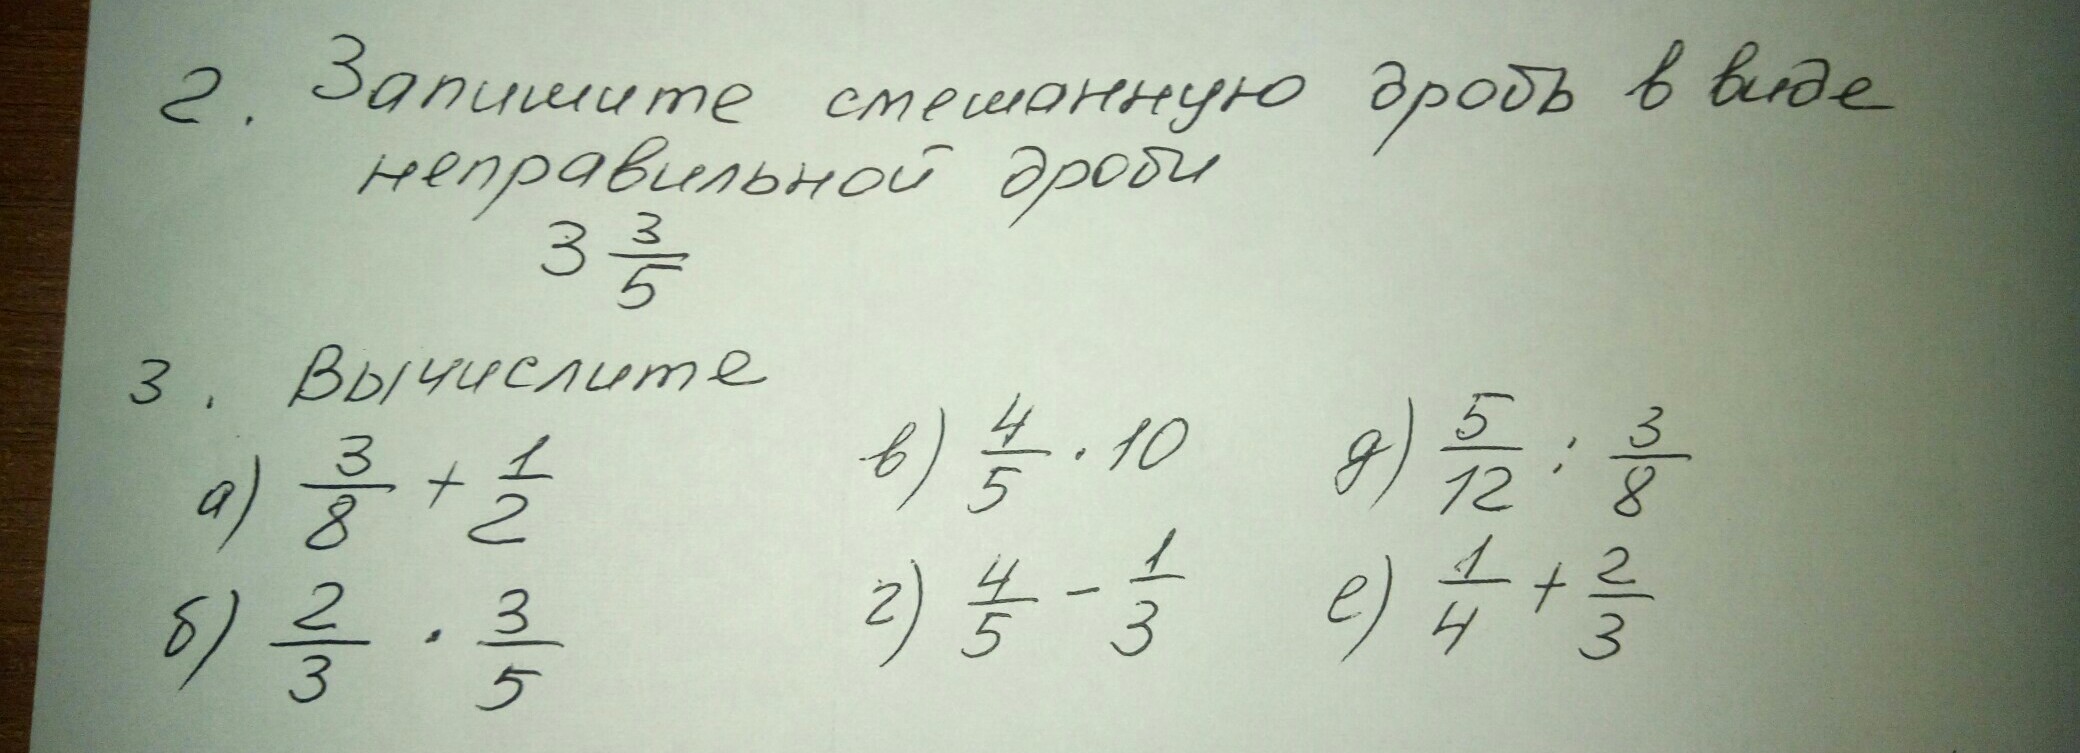 2. Запишите смешанную дробь в виде
неправильной дроби
3 3/5
3. Вычислите
а) 3/8 + 1/2
б) 2/3 · 3/5
в) 4/5 · 10
г) 4/5 - 1/3
д) 5/12 : 3/8
е) 1/4 + 2/3